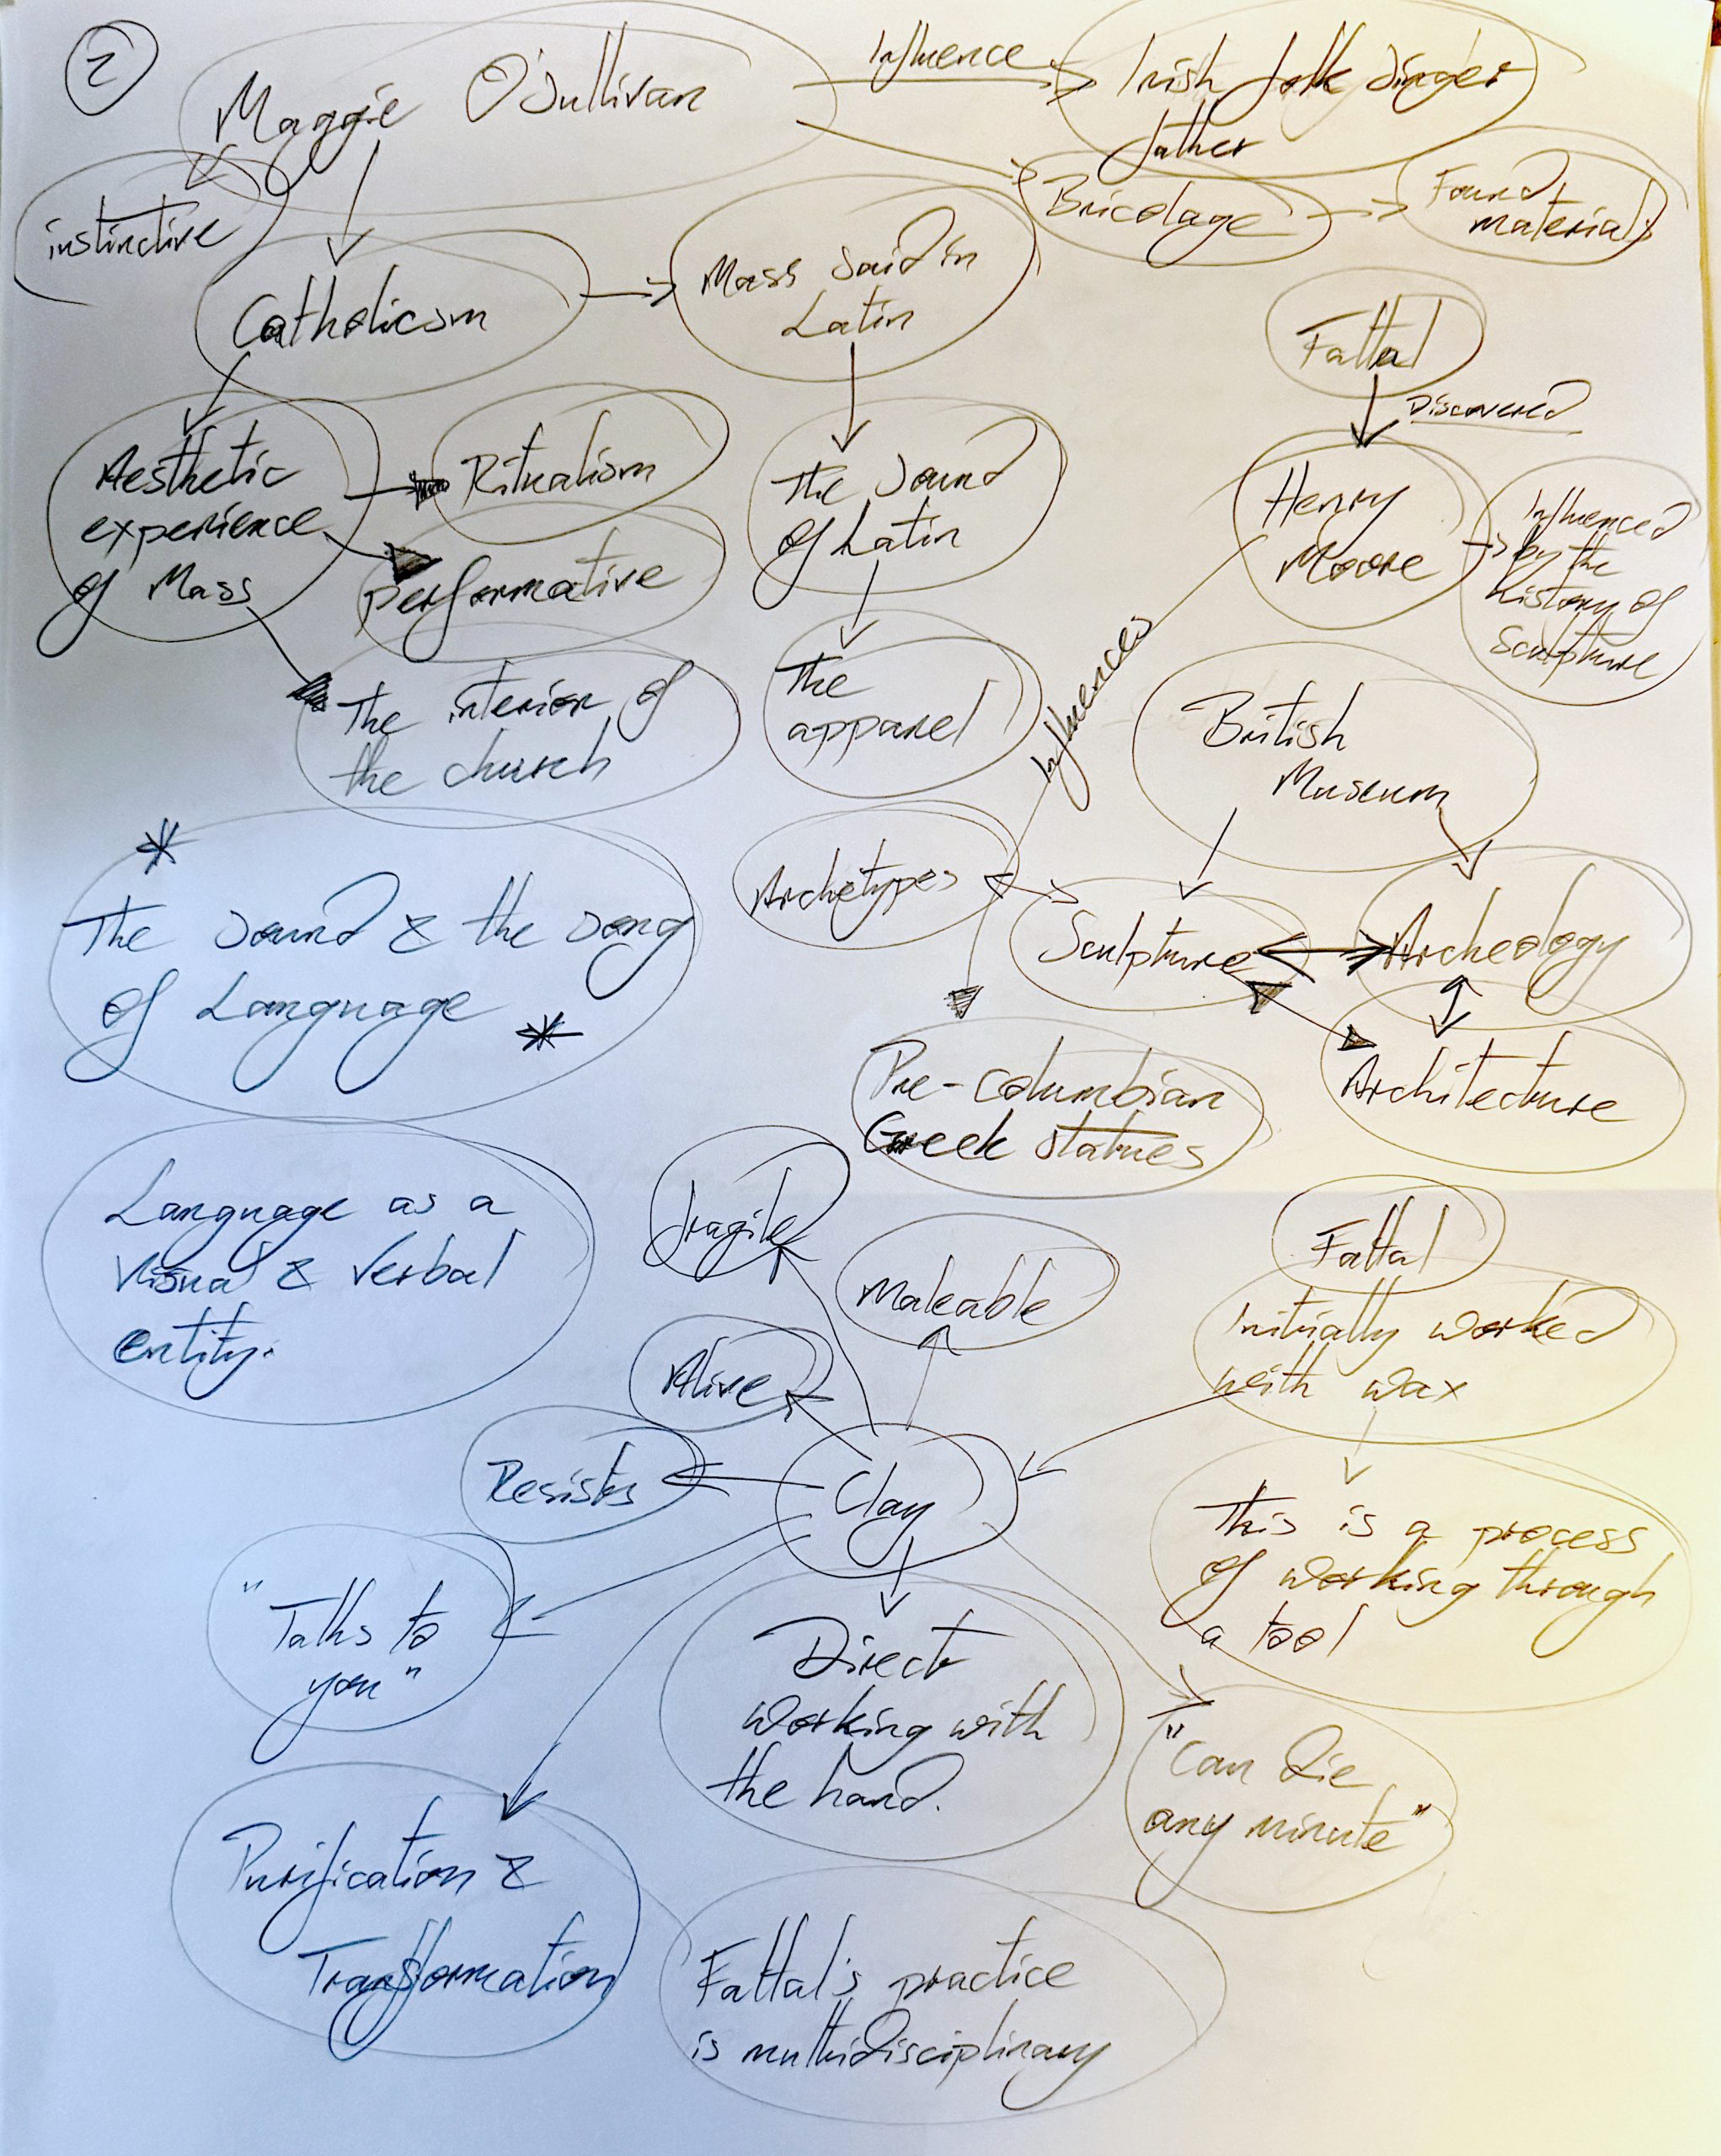 2
Maggie O'Sullivan
Influence
Irish folk singer
father
instinctive
Bricolage
Found
material
Catholicism
Mass said in
Latin
Aesthetic
experience
of Mass
Ritualism
performative
The interior of
the church
The sound
of Latin
The
apparel
Fattal
Discovered
Henry
Moore
Influenced
by the
history of
sculpture
Influences
British
Museum
Archetypes
Sculpture
Archeology
Architecture
Pre-columbian
Greek statues
*
The sound & the song
of Language
*
Language as a
visual & verbal
entity.
fragile
Maleable
Alive
Resists
Clay
Fattal
Initially worked
with wax
This is a process
of working through
a tool
"Talks to
you"
Direct
working with
the hand.
"Can die
any minute"
Purification &
Transformation
Fattal's practice
is multidisciplinary